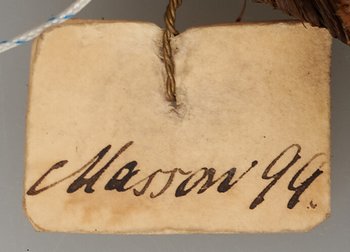 Massow 99.